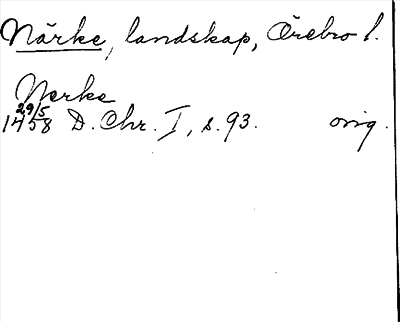 Närke, landskap, Örebro l.
Nerke
29/5
1458 D. Chr. I, s. 93. orig.